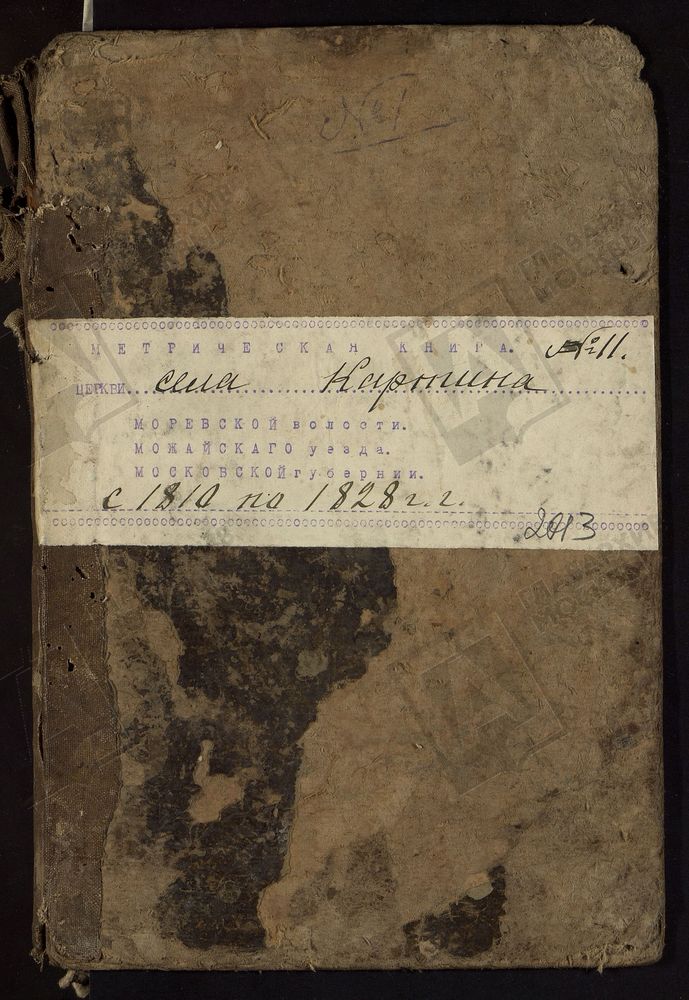 №1
МЕТРИЧЕСКАЯ КНИГА. №11.
ЦЕРКВИ села Карпина
МОРЕВСКОЙ волости.
МОЖАЙСКАГО уезда.
МОСКОВСКОЙ губернии.
с 1810 по 1828 г.г.
2013